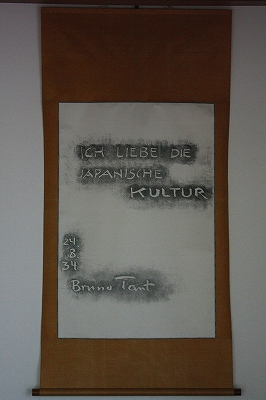 ICH LIEBE DIE
JAPANISCHE
KULTUR
24.
8.
34.
Bruno Taut